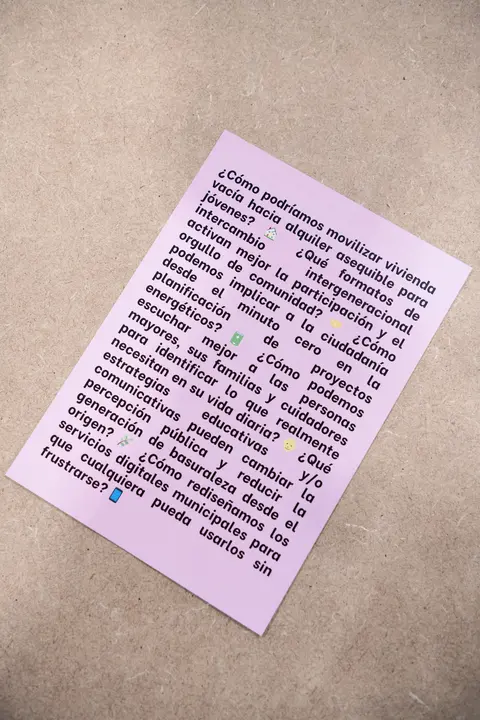 ¿Cómo podríamos movilizar vivienda
vacía hacia alquiler asequible para
jóvenes? 🏠 ¿Qué formatos de
intercambio intergeneracional
activan mejor la participación y el
orgullo de comunidad? ¿Cómo
podemos implicar a la ciudadanía
desde el minuto cero en la
planificación de proyectos
energéticos? ¿Cómo podemos
escuchar mejor a las personas
mayores, sus familias y cuidadores
para identificar lo que realmente
necesitan en su vida diaria? ¿Qué
estrategias educativas y/o
comunicativas pueden cambiar la
percepción pública y reducir la
generación de basuraleza desde el
origen? ¿Cómo rediseñamos los
servicios digitales municipales para
que cualquiera pueda usarlos sin
frustrarse?